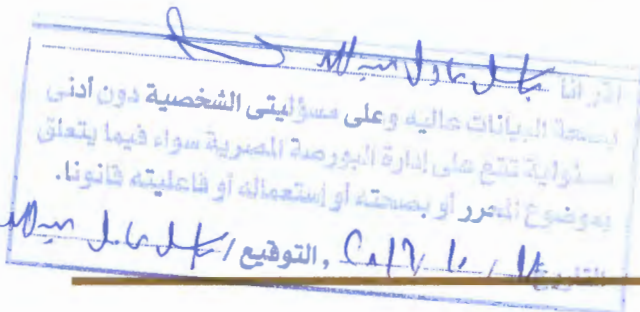 اقر أنا باسل عادل عبد الله
بصحة البيانات عاليه وعلى مسؤليتى الشخصية دون أدنى
مسئولية تقع على إدارة البورصة المصرية سواء فيما يتعلق
بموضوع المحرر أو بصحته أو إستعماله أو فاعليته قانونا.
التاريخ / ١٠ / ٢٠١٧ , التوقيع /